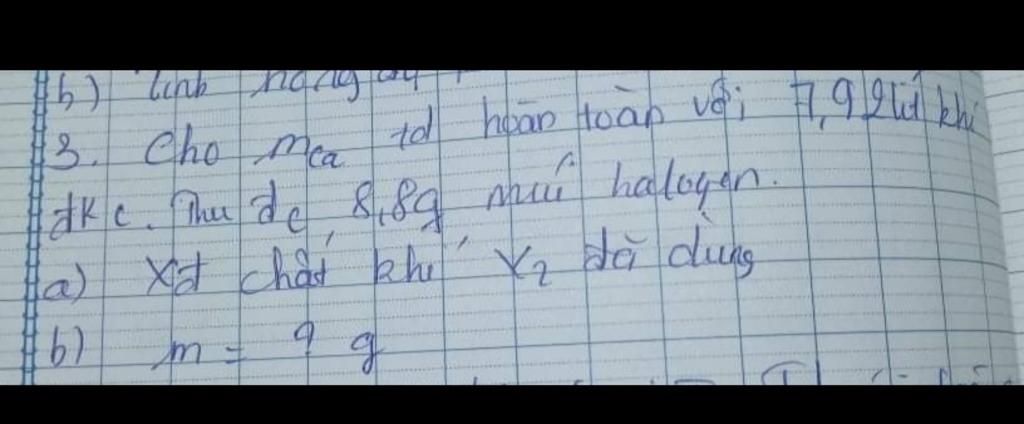 b) tính
3. Cho mCa td hoàn toàn với 7,92 lít khí
đkc. Thu đc 8,8g muối halogen.
a) Xđ chất khí X2 đã dùng
b) m = ? g